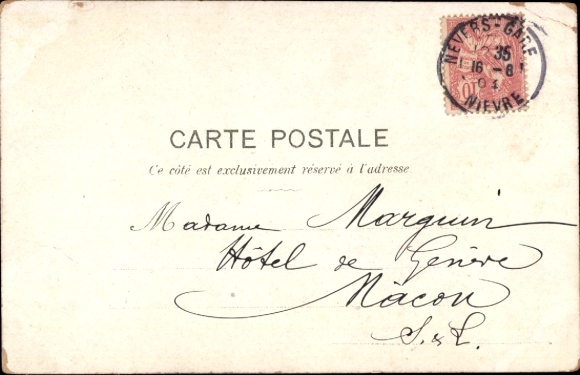 NEVERS-GARE
35
16 - 6
03
NIEVRE
10
CARTE POSTALE
Ce côté est exclusivement réservé à l'adresse.
Madame Marguin
Hôtel de Genève
Mâcon
S.&L.